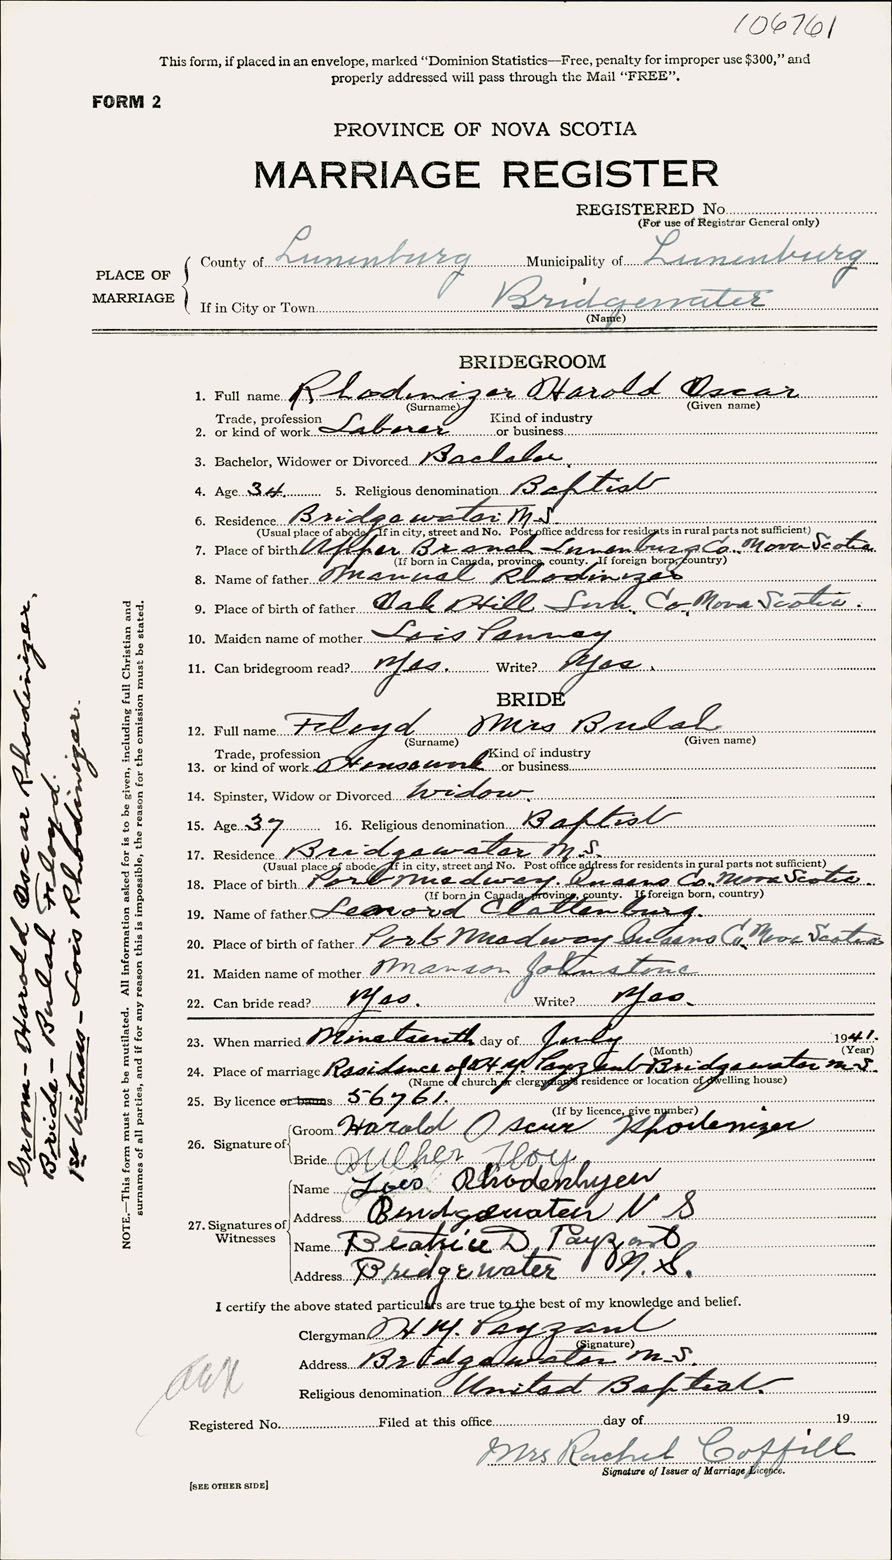 106761
This form, if placed in an envelope, marked “Dominion Statistics—Free, penalty for improper use $300,” and
properly addressed will pass through the Mail “FREE”.
FORM 2
PROVINCE OF NOVA SCOTIA
MARRIAGE REGISTER
REGISTERED No.
(For use of Registrar General only)
PLACE OF MARRIAGE
County of Lunenburg Municipality of Lunenburg
If in City or Town Bridgewater
(Name)
BRIDEGROOM
1. Full name Rhodinizer Harold Oscar
(Surname) (Given name)
Trade, profession Kind of industry
2. or kind of work Laborer or business
3. Bachelor, Widower or Divorced Bachelor.
4. Age 34. 5. Religious denomination Baptist
6. Residence Bridgewater N.S.
(Usual place of abode. If in city, street and No. Post office address for residents in rural parts not sufficient)
7. Place of birth Upper Branch Lunenburg Co. Nova Scotia
(If born in Canada, province, county. If foreign born, country)
8. Name of father Manual Rhodinizer
9. Place of birth of father Oak Hill Lun. Co. Nova Scotia.
10. Maiden name of mother Lois
11. Can bridegroom read? Yes. Write? Yes.
BRIDE
12. Full name Floyd Mrs Bulah
(Surname) (Given name)
Trade, profession Kind of industry
13. or kind of work Housework or business
14. Spinster, Widow or Divorced Widow.
15. Age 37 16. Religious denomination Baptist
17. Residence Bridgewater N.S.
(Usual place of abode. If in city, street and No. Post office address for residents in rural parts not sufficient)
18. Place of birth Port Medway Queens Co. Nova Scotia.
(If born in Canada, province, county. If foreign born, country)
19. Name of father Lenord Clattenburg.
20. Place of birth of father Port Medway Queens Co. Nova Scotia
21. Maiden name of mother Manson Johnstone
22. Can bride read? Yes. Write? Yes.
23. When married Nineteenth day of July 1941.
(Month) (Year)
24. Place of marriage Residence of H.Y. Payzant Bridgewater N.S.
(Name of church or clergyman's residence or location of dwelling house)
25. By licence or banns 56761.
(If by licence, give number)
26. Signature of
Groom Harold Oscar
Bride
27. Signatures of Witnesses
Name Lois Rhodenhyer
Address Bridgewater N S
Name Beatrice D Payzant
Address Bridgewater N.S.
I certify the above stated particulars are true to the best of my knowledge and belief.
Clergyman H.Y. Payzant
(Signature)
Address Bridgewater N.S.
Religious denomination United Baptist.
Registered No. Filed at this office day of 19
Mrs Rachel Coffill
Signature of Issuer of Marriage Licence.
[SEE OTHER SIDE]
NOTE.—This form must not be mutilated. All information asked for is to be given, including full Christian and
surnames of all parties, and if for any reason this is impossible, the reason for the omission must be stated.
Groom - Harold Oscar Rhodinizer.
Bride - Bulah Floyd.
1st Witness - Lois Rhodinizer.